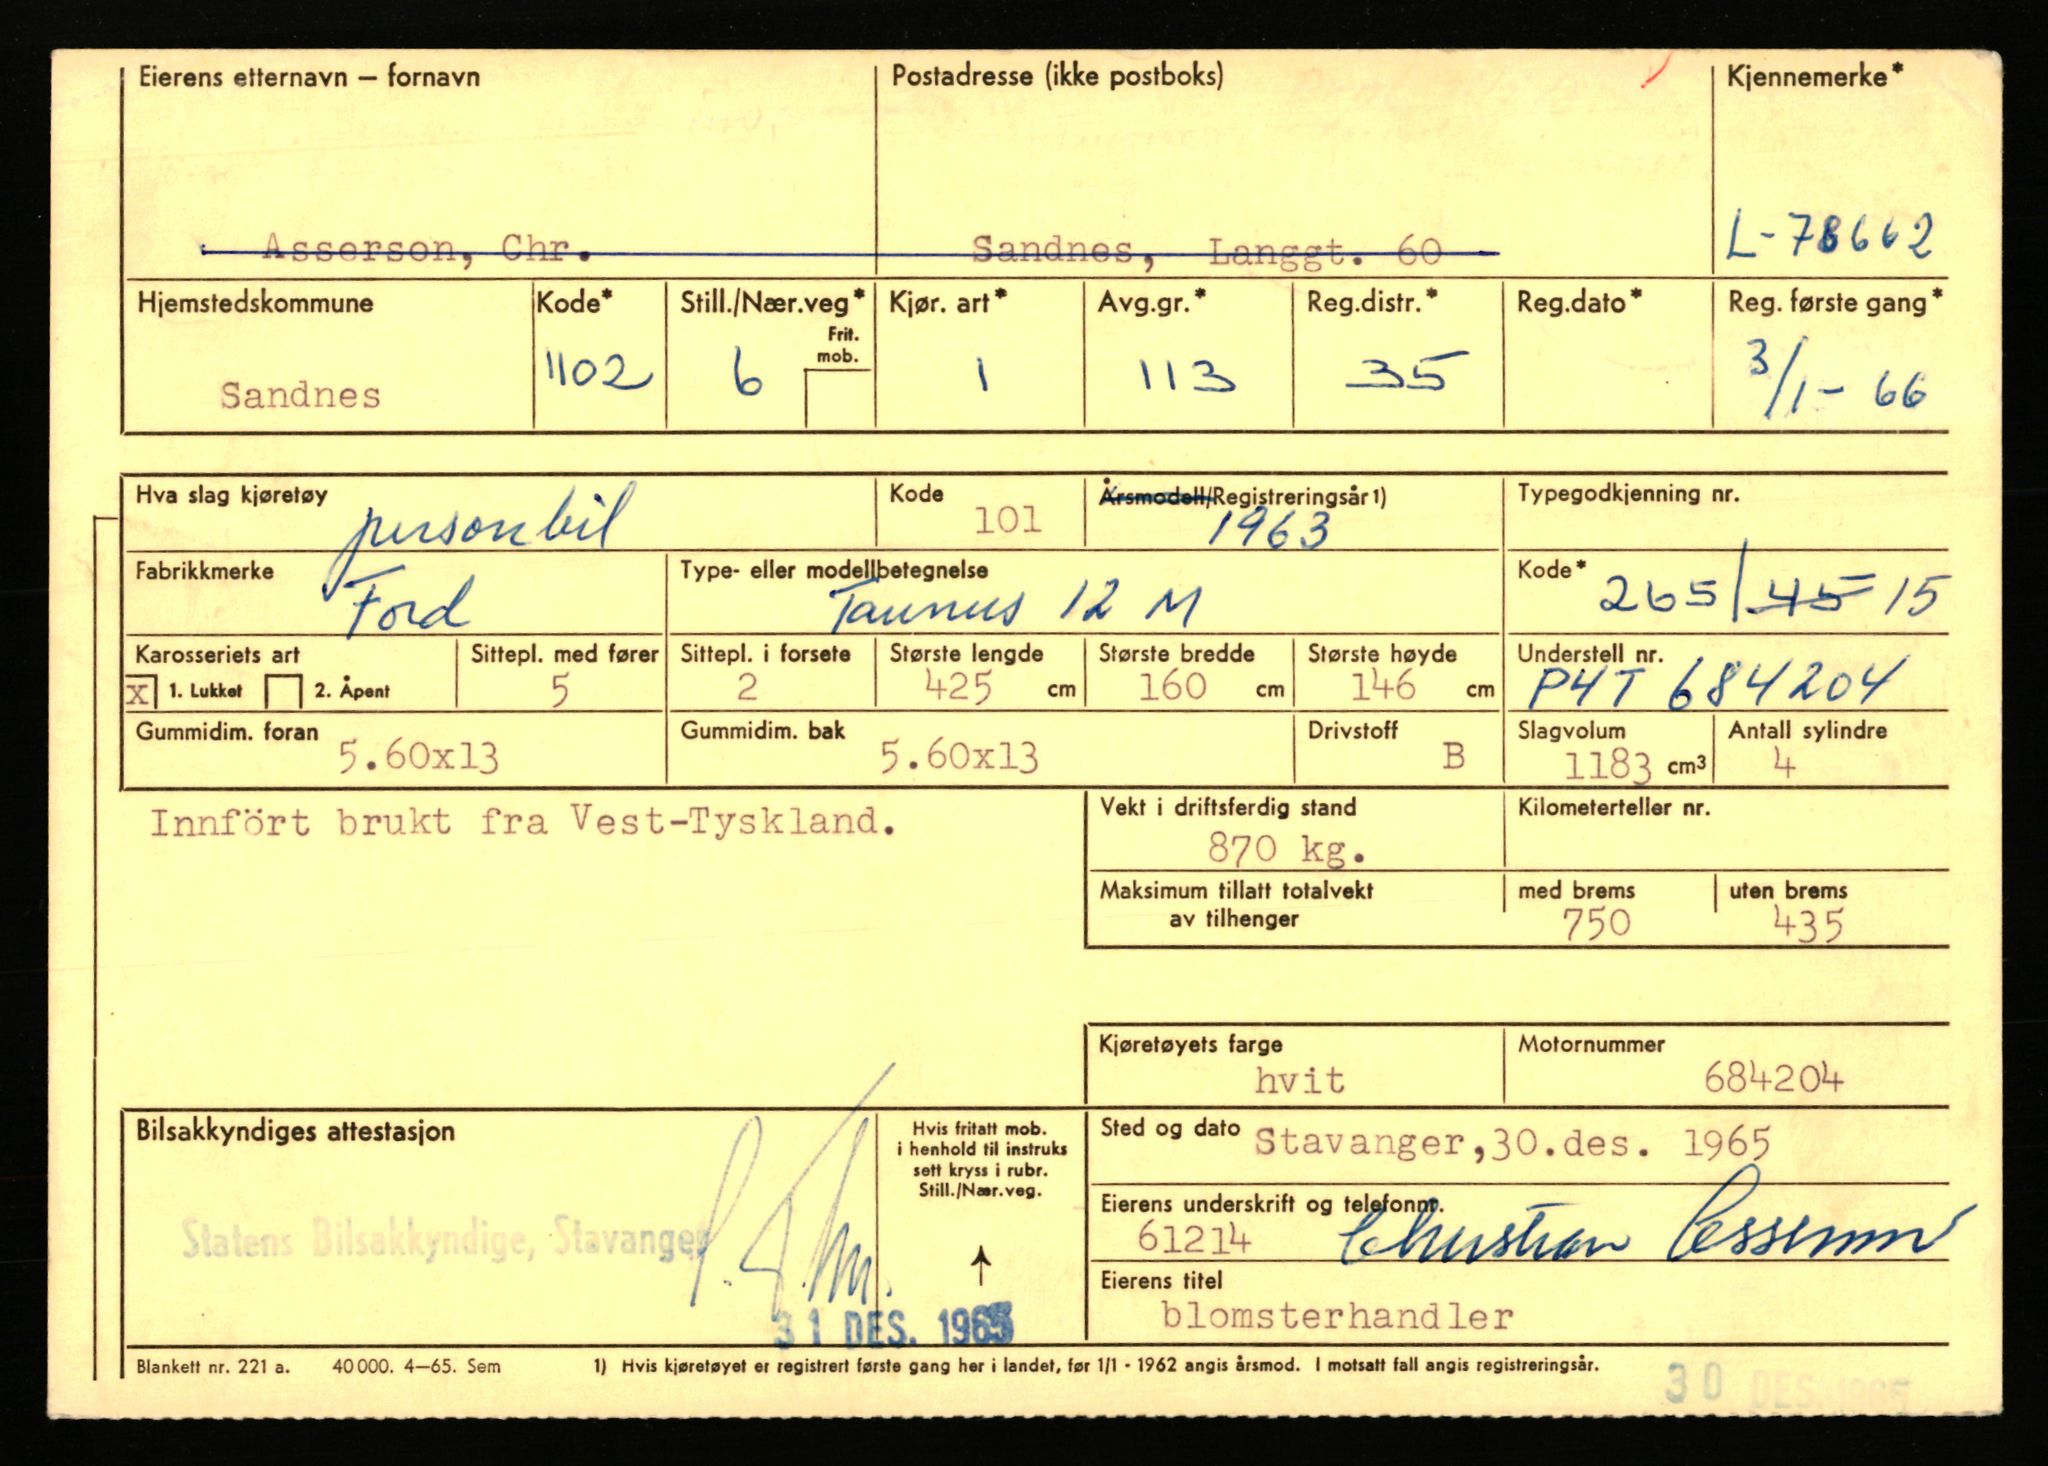 Eierens etternavn – fornavn Postadresse (ikke postboks) Kjennemerke*
Asserson, Chr. Sandnes, Langgt. 60 L-78662
Hjemstedskommune Kode* Still./Nær.veg* Kjør. art* Avg.gr.* Reg.distr.* Reg.dato* Reg. første gang*
Frit.
mob.
Sandnes 1102 6 1 113 35 3/1-66
Hva slag kjøretøy Kode Årsmodell/Registreringsår 1) Typegodkjenning nr.
personbil 101 1963
Fabrikkmerke Type- eller modellbetegnelse Kode*
Ford Taunus 12 M 265/45 15
Karosseriets art Sittepl. med fører Sittepl. i forsete Største lengde Største bredde Største høyde Understell nr.
X 1. Lukket 2. Åpent 5 2 425 cm 160 cm 146 cm P4T 684204
Gummidim. foran Gummidim. bak Drivstoff Slagvolum Antall sylindre
5.60x13 5.60x13 B 1183 cm3 4
Innført brukt fra Vest-Tyskland.
Vekt i driftsferdig stand Kilometerteller nr.
870 kg.
Maksimum tillatt totalvekt med brems uten brems
av tilhenger 750 435
Kjøretøyets farge Motornummer
hvit 684204
Bilsakkyndiges attestasjon
Hvis fritatt mob.
i henhold til instruks
sett kryss i rubr.
Still./Nær.veg.
Sted og dato Stavanger,30.des. 1965
Eierens underskrift og telefonnr.
61214 Christian Asserson
Statens Bilsakkyndige, Stavanger
Eierens titel
blomsterhandler
31 DES. 1965
Blankett nr. 221 a. 40 000. 4–65. Sem 1) Hvis kjøretøyet er registrert første gang her i landet, før 1/1 - 1962 angis årsmod. I motsatt fall angis registreringsår.
30 DES. 1965